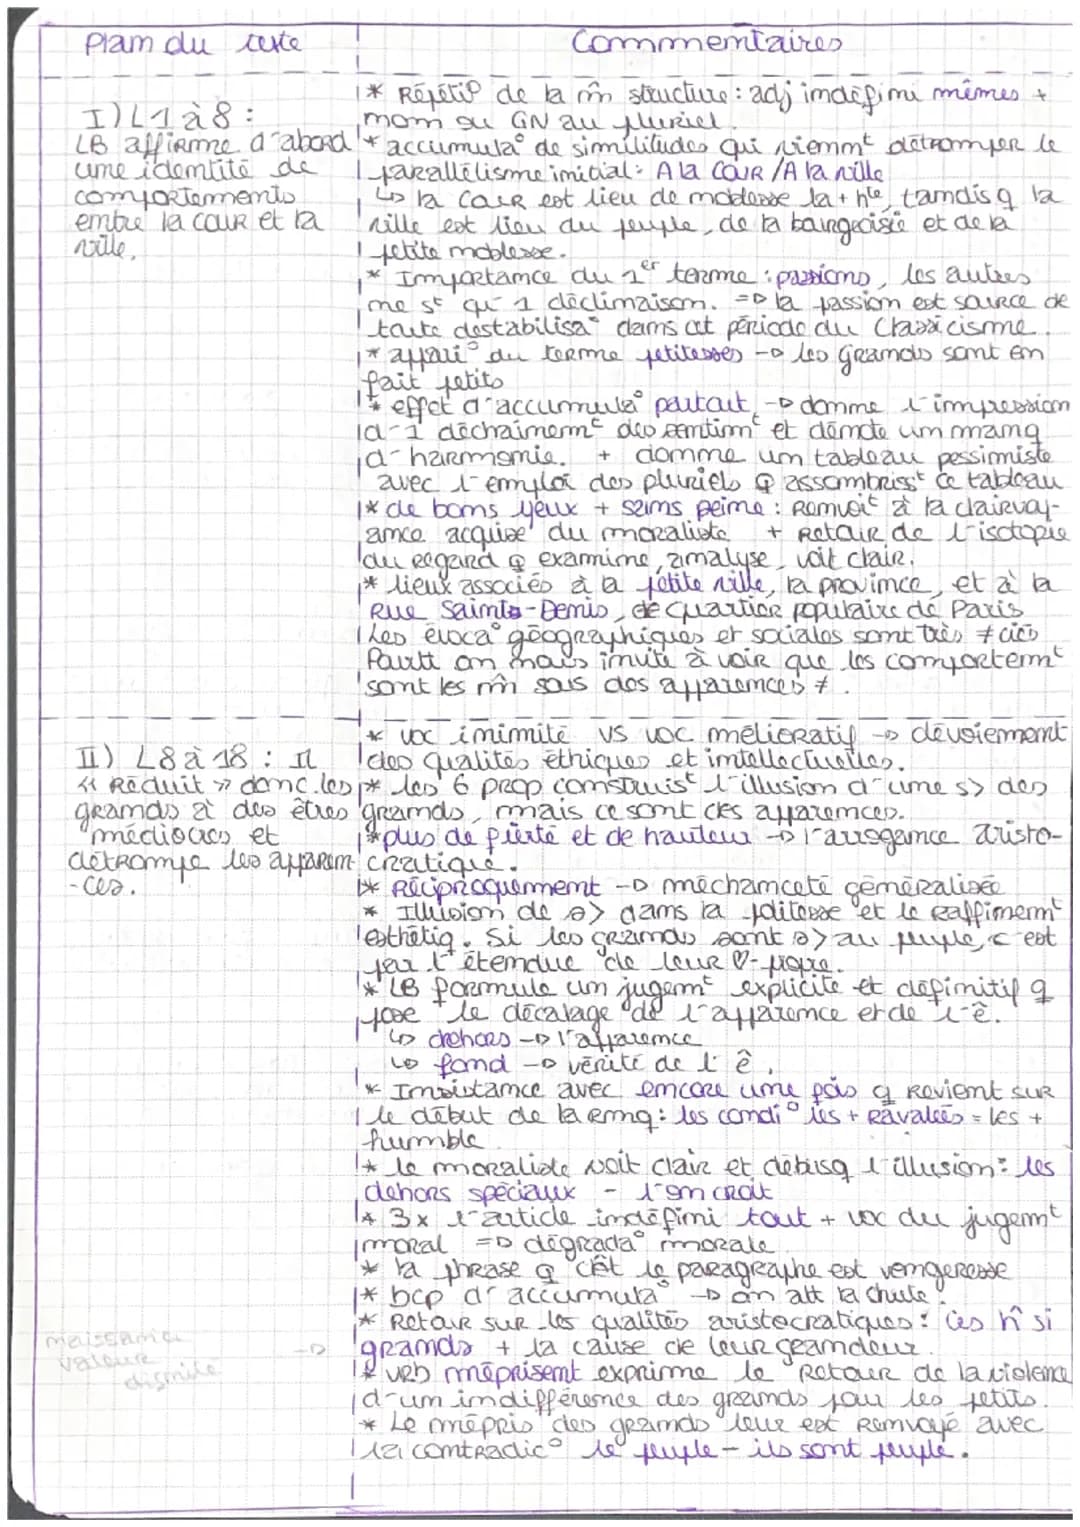 Plan du texte
Commentaires
I) L1 à 8 :
LB affirme d'abord
une identité de
comportements
entre la cour et la
ville.
* Répéti° de la m̂ structure : adj indéfini mêmes +
nom ou GN au pluriel.
* accumula° de similitudes qui viennent détromper le
parallélisme initial : A la cour / A la ville
↳ la cour est lieu de noblesse la + hte, tandis q la
ville est lieu du peuple, de la bourgeoisie et de la
petite noblesse.
* Importance du 1er terme : passions, les autres
ne st qu' 1 déclinaison. => la passion est source de
toute destabilisa° dans cet période du Classicisme.
* appari° du terme petitesses -> les Grands sont en
fait petits
* effet d'accumula° partout -> donne l'impression
d'1 déchaînemt des sentimt et dénote un manq
d'harmonie. + donne un tableau pessimiste
avec l'emploi des pluriels q assombrisst ce tableau
* de bons yeux + sans peine : Renvoit à la clairvoy-
ance acquise du moraliste + Retour de l'isotopie
du regard q examine, analyse, voit clair.
* lieux associés à la petite ville, la province, et à la
Rue Saint-Denis, de quartier populaire de Paris
Les évoca° géographiques et sociales sont très ≠ciés
Partt on nous invite à voir que les comportemt
sont les m̂ sous des apparences ≠.
II) L8 à 18 : Il
« Réduit » donc les
grands à des êtres
médiocres et
détrompe les apparen
-ces.
* voc inimité vs voc mélioratif -> dévoiement
des qualités éthiques et intellectuelles.
* les 6 prop construist l'illusion d'une s> des
grands, mais ce sont des apparences.
* plus de fierté et de hauteur -> l'arrogance aristo-
cratique.
* Réciproquement -> méchanceté généralisée
* Illusion de s> dans la politesse et le Raffinemt
esthétiq. Si les grands sont s> au peuple, c'est
par l'étendue de leur ♡-propre.
* LB formule un jugemt explicite et définitif q
pose le décalage de l'apparence et de l'ê.
↳ dehors -> l'apparence
↳ fond -> vérité de l'ê.
* Insistance avec encore une fois q Revient sur
le début de la Rmq : les condi° les + Ravalées = les +
humble
* le moraliste voit clair et débusq l'illusion : les
dehors spéciaux - l'on croit
* 3x l'article indéfini tout + voc du jugemt
moral => dégrada° morale
* la phrase q clôt le paragraphe est vengeresse
* bcp d'accumula° -> on att la chute !
* Retour sur les qualités aristocratiques : Ces h̑ si
grands + la cause de leur grandeur.
* vrb méprisent exprime le Retour de la violence
d'un indifférence des grands pour les petits.
* Le mépris des grands leur est Renvoyé avec
la contradic° le peuple - ils sont peuple.
naissance
valeur ->
dignité